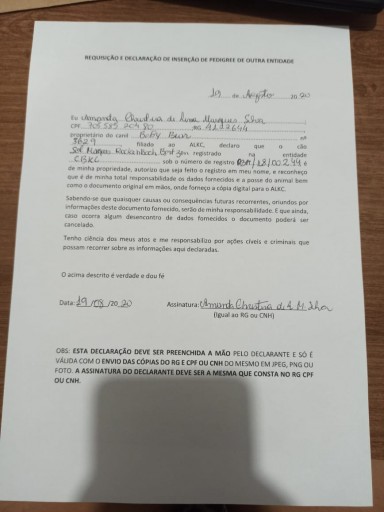 REQUISIÇÃO E DECLARAÇÃO DE INSERÇÃO DE PEDIGREE DE OUTRA ENTIDADE
19 de Agosto 20 20
Eu Amanda Christina de Marques Silva
CPF RG
proprietário do canil nº
3829, filiado ao ALKC, declaro que o cão
registrado na entidade
CBKC sob o número de registro
de minha propriedade, autorizo que seja feito o registro em meu nome, e reconheço
que é de minha total responsabilidade os dados fornecidos e a posse do animal bem
como o documento original em mãos, onde forneço a cópia digital para o ALKC.
Sabendo-se que quaisquer causas ou consequências futuras recorrentes, oriundos por
informações deste documento fornecido, serão de minha responsabilidade. E que ainda,
caso ocorra algum desencontro de dados fornecidos o documento poderá ser
cancelado.
Tenho ciência dos meus atos e me responsabilizo por ações cíveis e criminais que
possam recorrer sobre as informações aqui declaradas.
O acima descrito é verdade e dou fé
Data: 19/08/2020 Assinatura: Amanda Christina de M. Silva
(Igual ao RG ou CNH)
OBS: ESTA DECLARAÇÃO DEVE SER PREENCHIDA A MÃO PELO DECLARANTE E SÓ É
VÁLIDA COM O ENVIO DAS CÓPIAS DO RG E CPF OU CNH DO MESMO EM JPEG, PNG OU
FOTO. A ASSINATURA DO DECLARANTE DEVE SER A MESMA QUE CONSTA NO RG CPF
OU CNH.